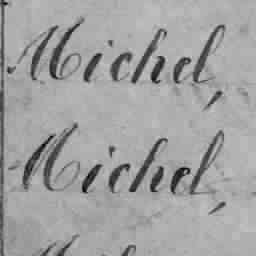 Michel,
Michel,